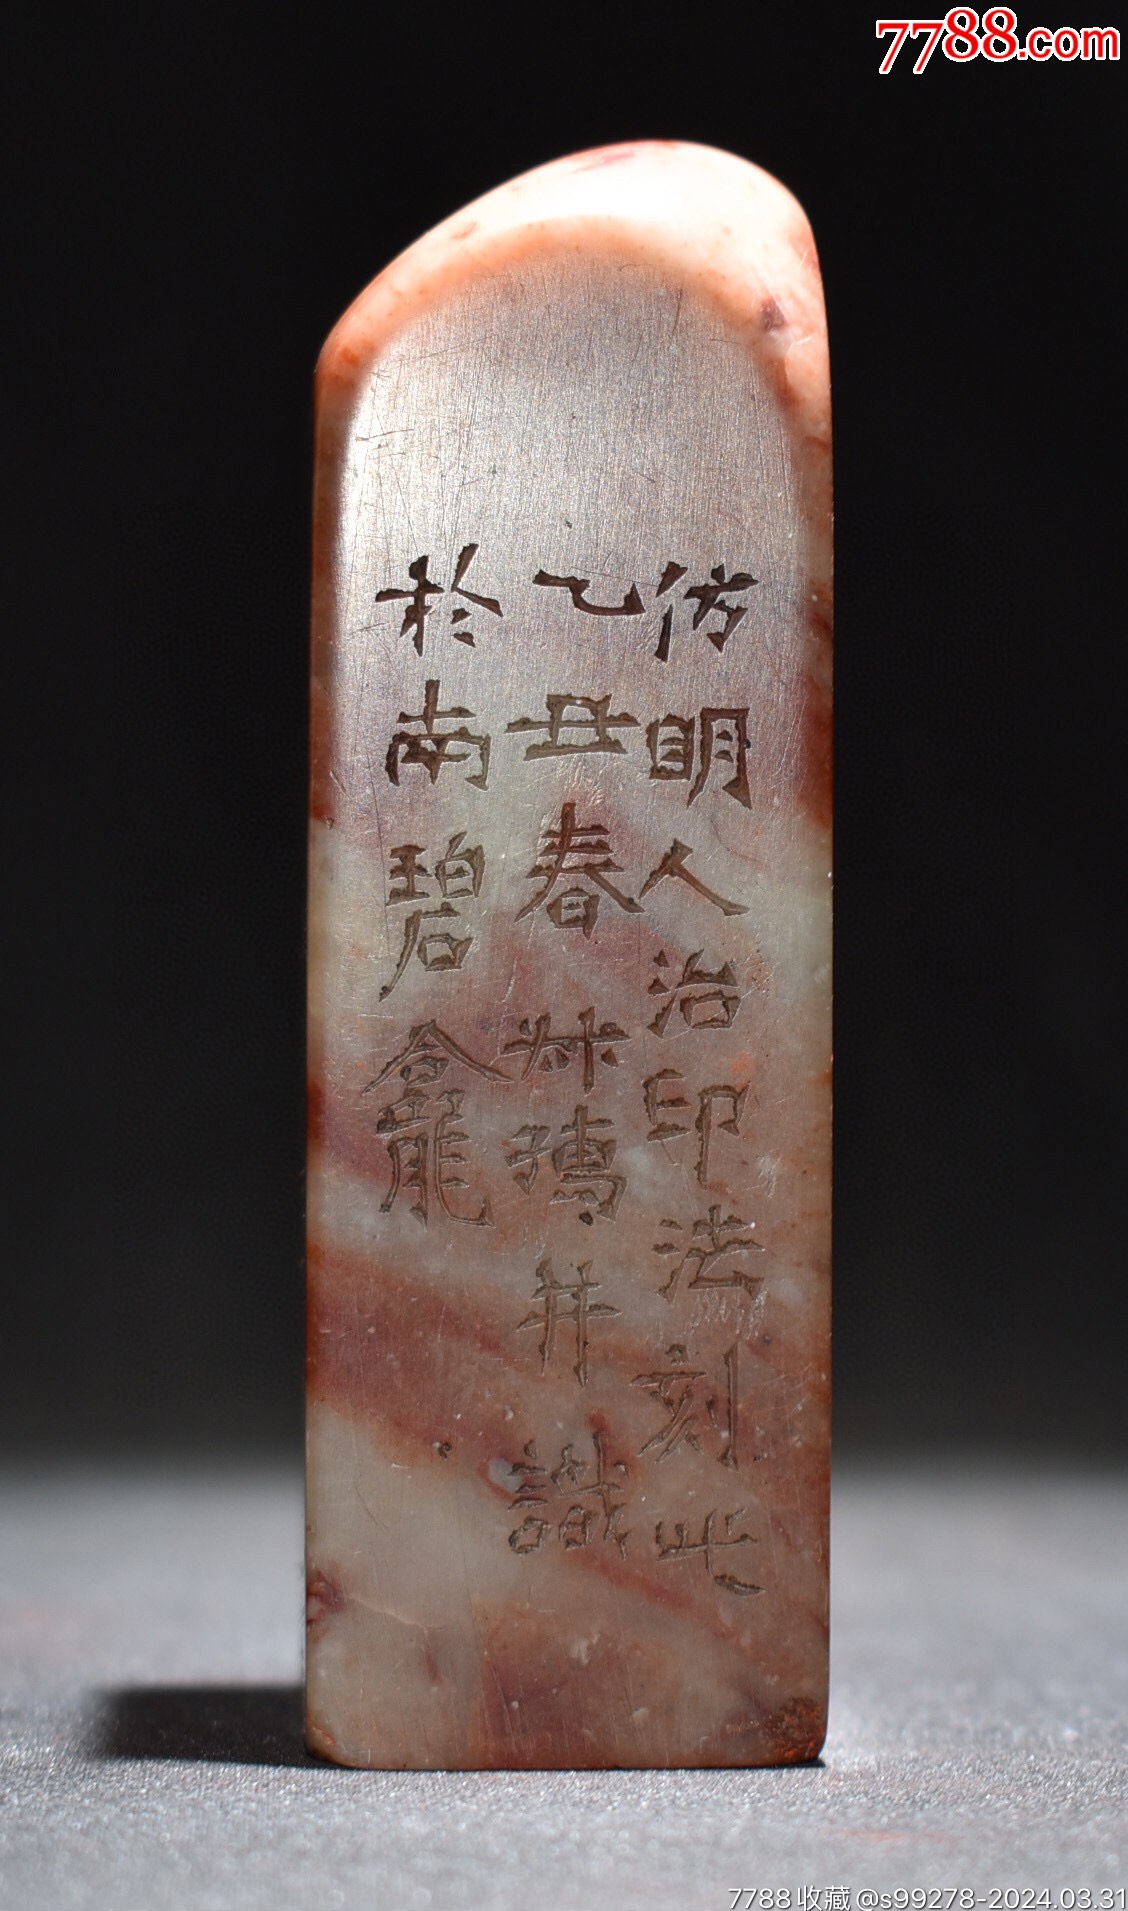 7788.com
仿明人治印法刻此
乙丑春叔孺并識
於南碧龕
7788收藏@s99278-2024.03.31